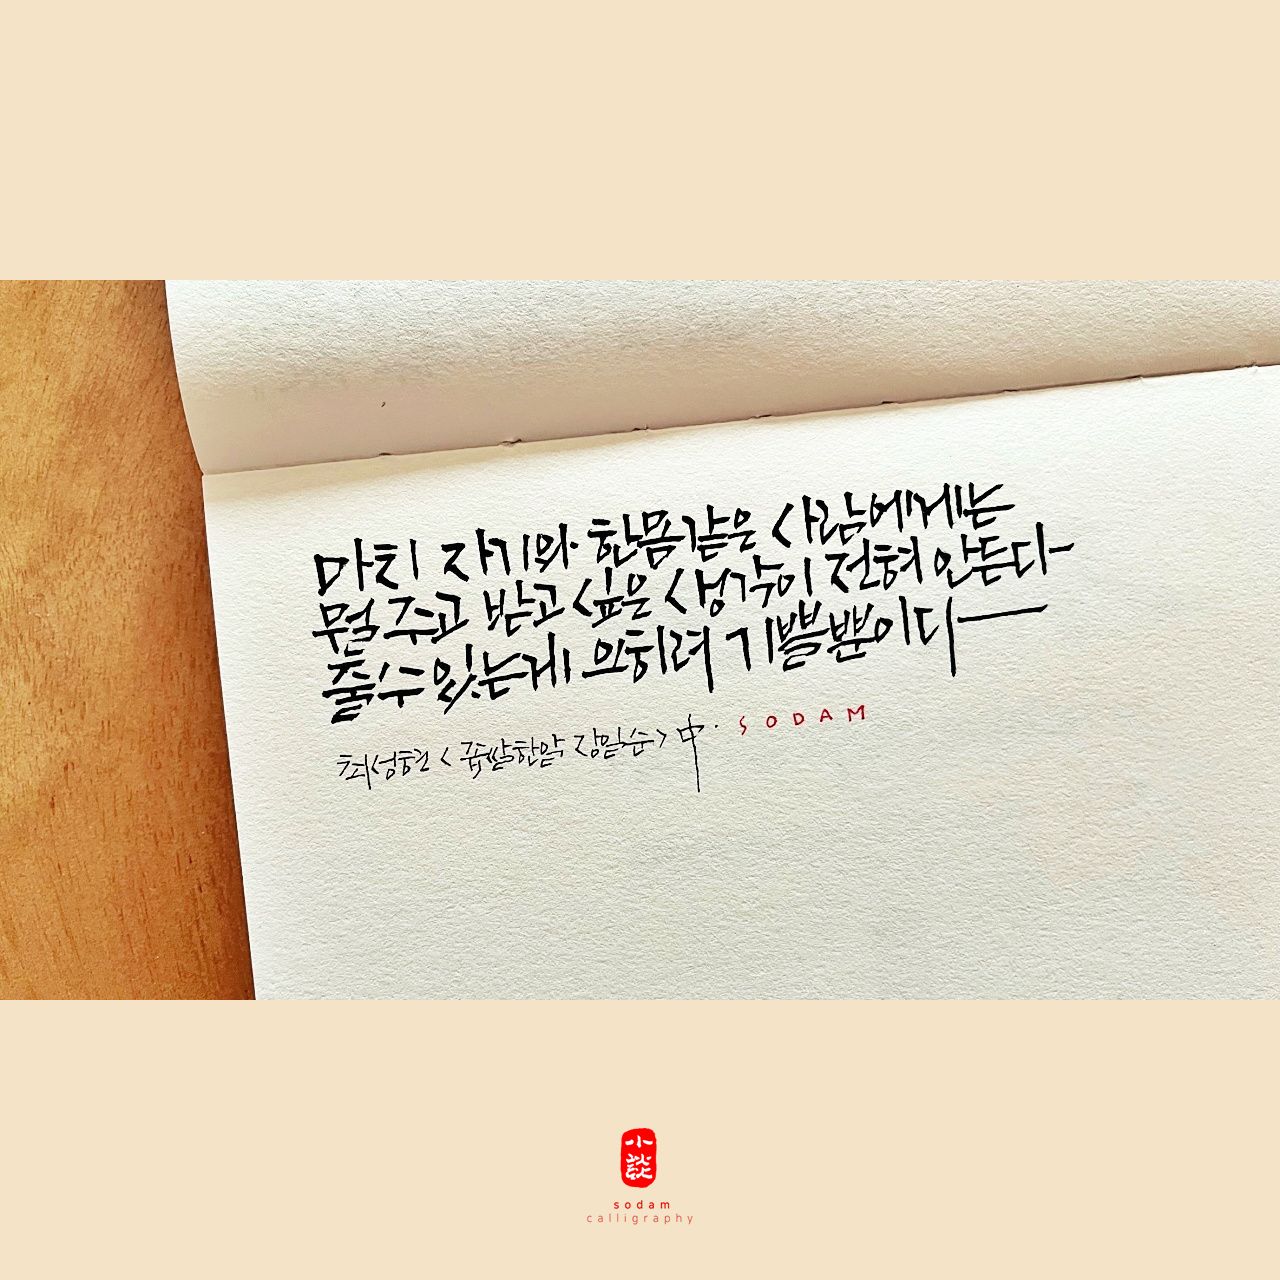 마치 자기와 한몸같은 사람에게는
뭘 주고 받고 싶은 생각이 전혀 안든다
줄 수 있는게 오히려 기쁠뿐이다
최성현 < 좁쌀한알 장일순 > 中. SODAM
小談
sodam
calligraphy